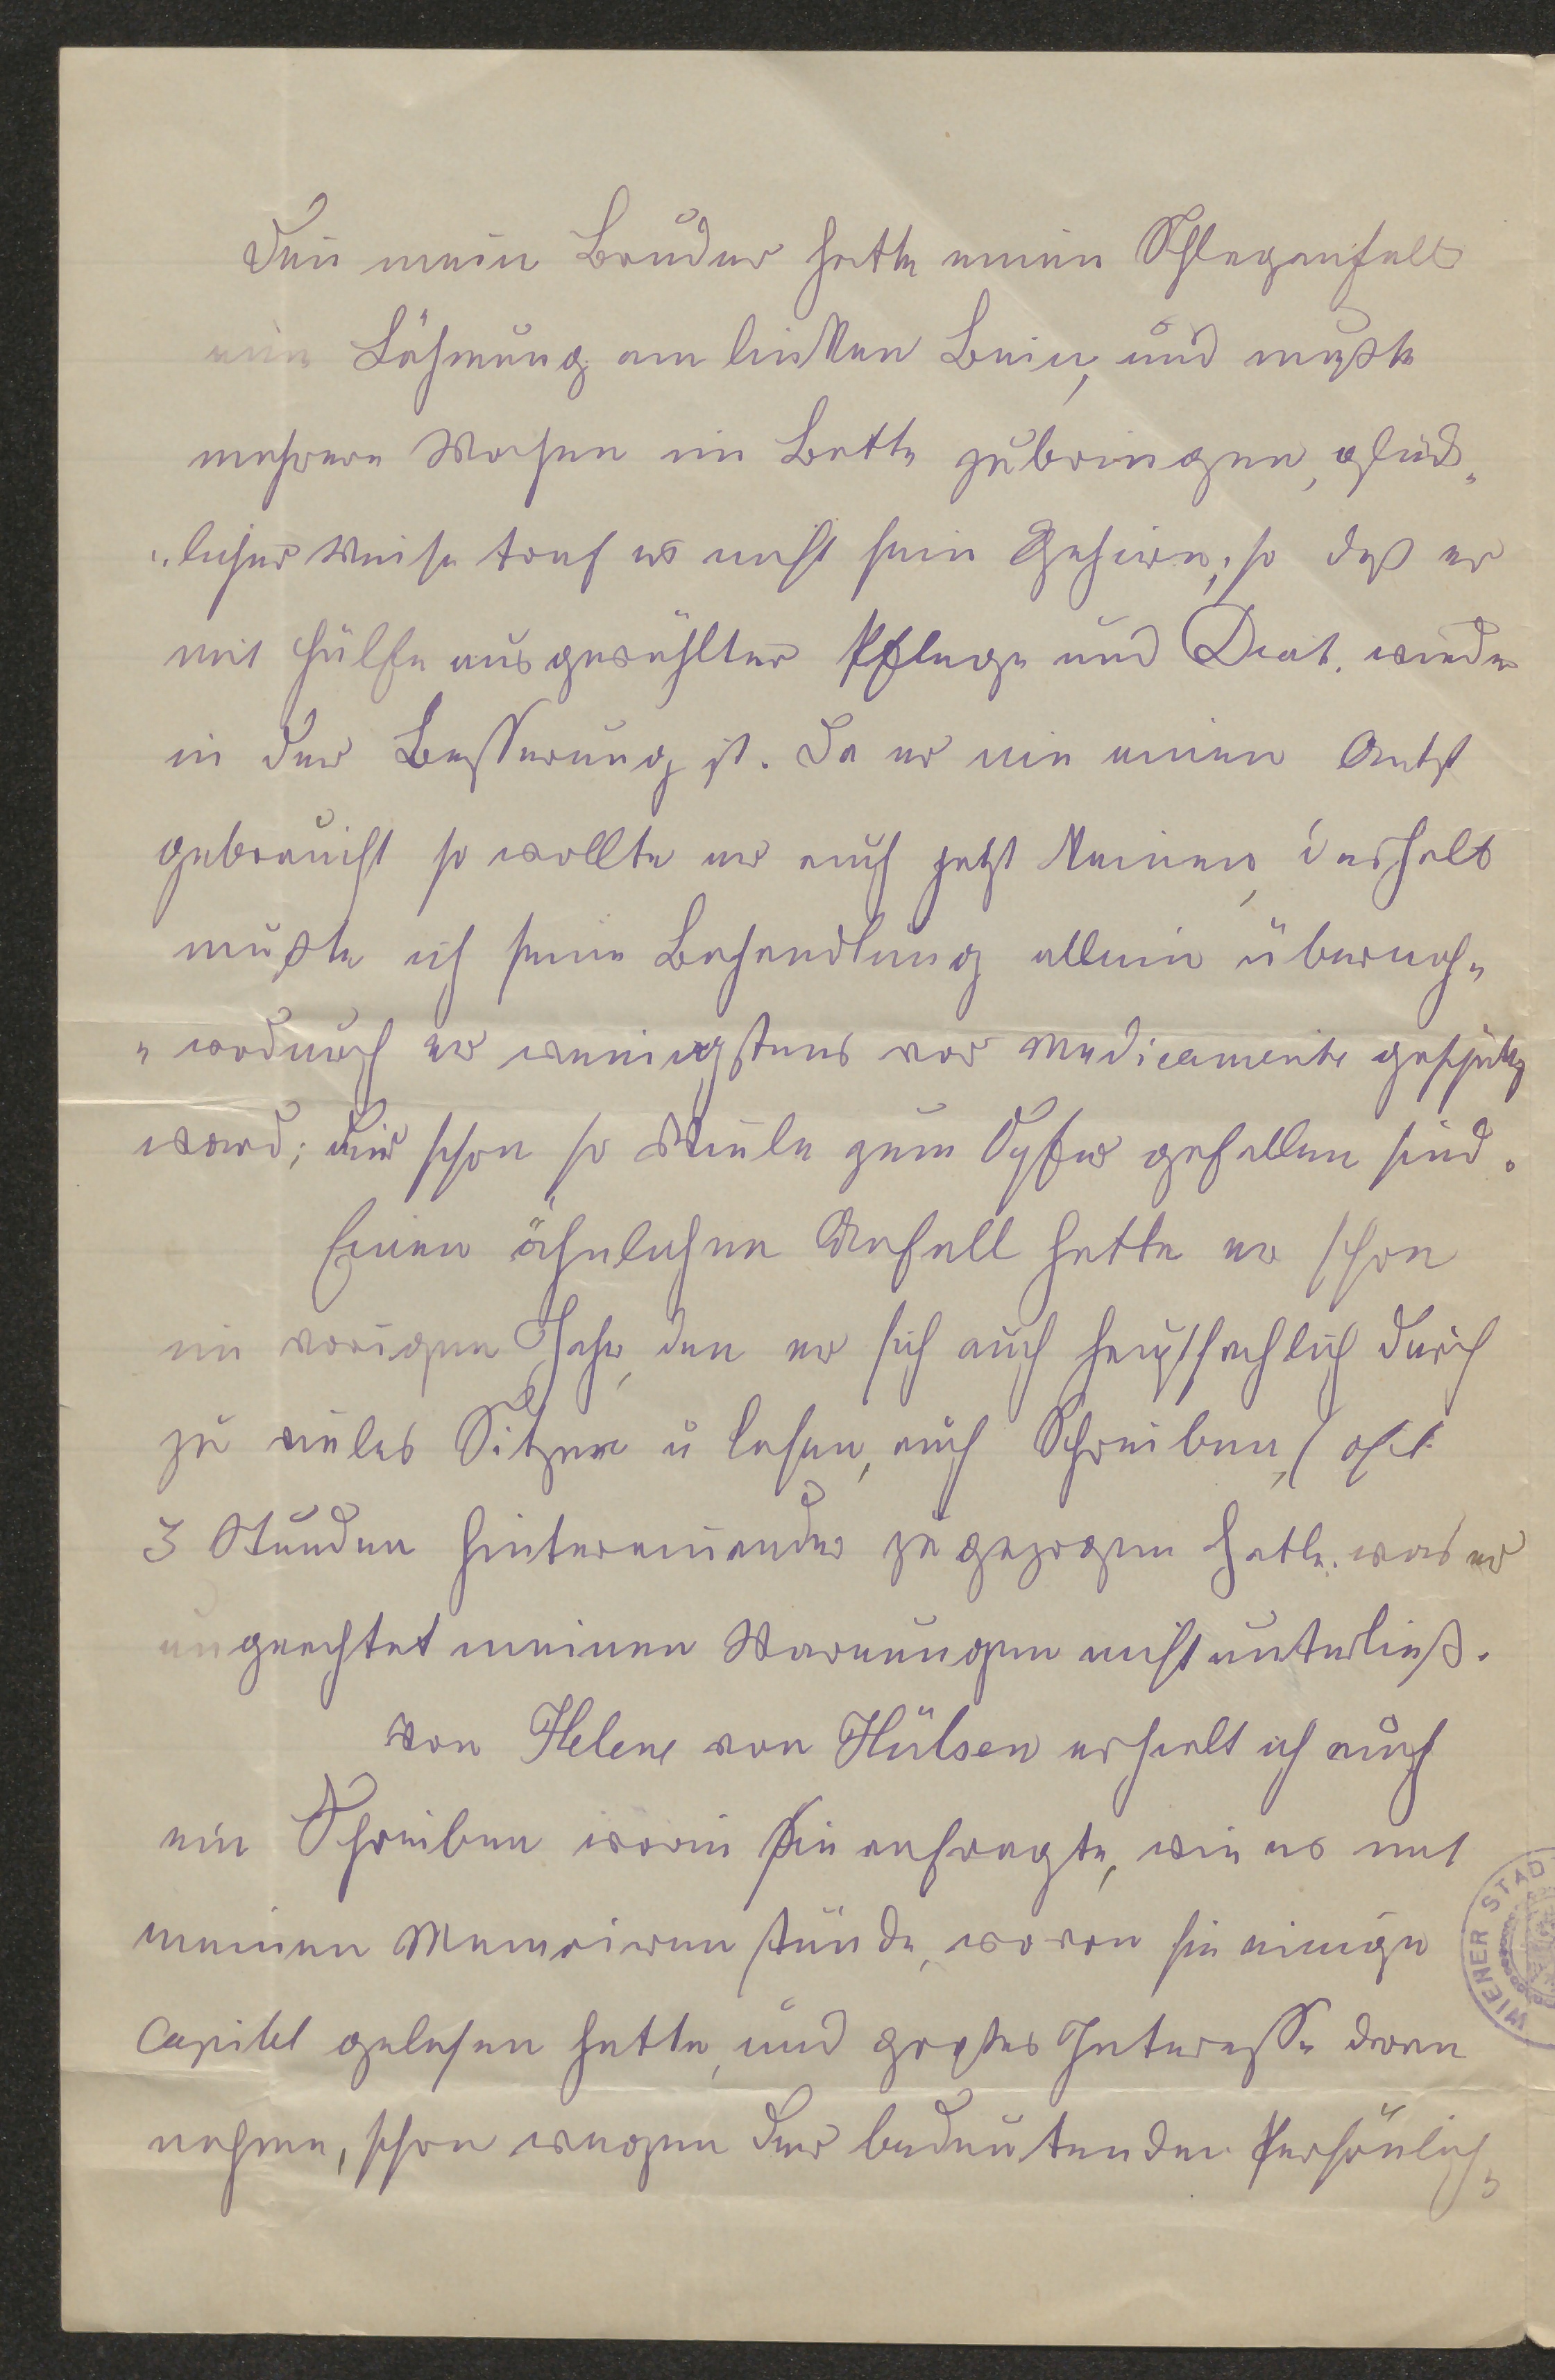 Den mein Bruder hatte einen Schleganfall
eine Lähmung am linken Bein, und mußte
mehrere Wochen im Bette zubringen, glück„
„licher Weise traf es nicht sein Gehirn, so daß er
mit Hülfe ausgewählter Pflege und Diat. wieder
in der Besserung ist. Da er nie einen Artzt
gebraucht so wollte er auch jetzt keinen, deshalb
mußte ich seine Behandlung allein überneh„
„ wodurch er wenigstens vor Medicamente geschützt
ward; die schon so Viele zum Opfer gefallen sind.
Einen ähnlichen Anfall hatte er schon
im vorigen Jahr, den er sich auch hauptsachlich durch
zu vieles Sitzen u lesen, auch Schreiben, ( oft
3 Stunden hintereinander zugezogen hatte. was er
ungeachtet meinen Warnungen nicht unterließ.
Von Helene von Hülsen erhielt ich auch
ein Schreiben worin sie anfragte, wie es mit
meinen Memoiren stünde, wovon sie einige
Capitel gelesen hatte, und großes Interesse daran
nehme, schon wegen der bedeutenden Persönlich„
WIENER STAD